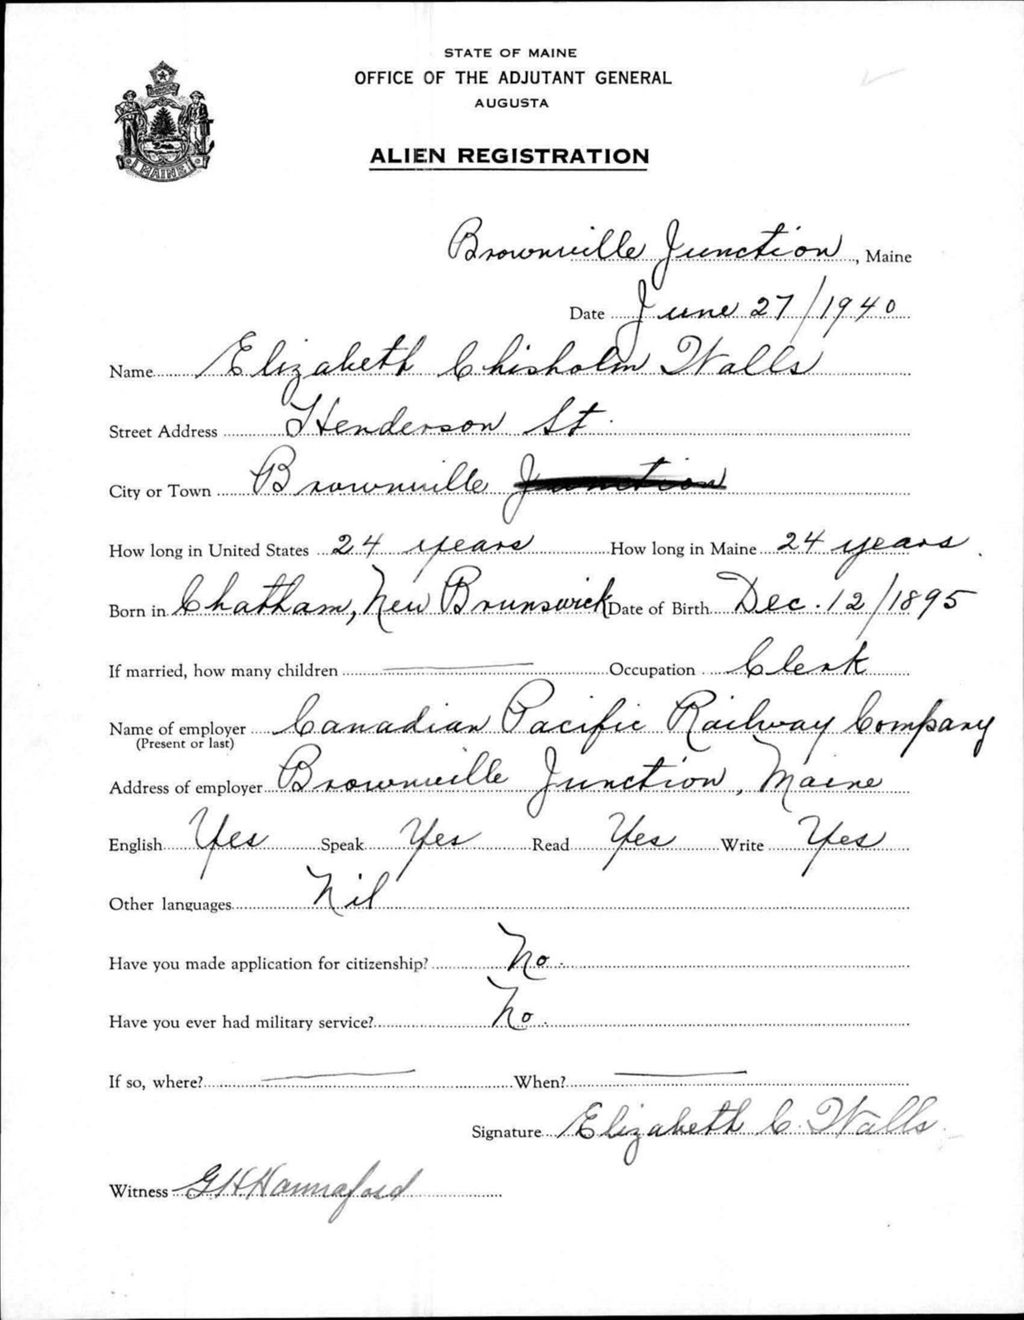 STATE OF MAINE
OFFICE OF THE ADJUTANT GENERAL
AUGUSTA
ALIEN REGISTRATION
MAINE
Brownville Junction, Maine
Date June 27/1940
Name Elizabeth Chisholm Walls
Street Address Henderson St.
City or Town Brownville Junction
How long in United States 24 years How long in Maine 24 years.
Born in Chatham, New Brunswick Date of Birth Dec. 12/1895
If married, how many children Occupation Clerk
Name of employer Canadian Pacific Railway Company
(Present or last)
Address of employer Brownville Junction, Maine
English Yes Speak Yes Read Yes Write Yes
Other languages Nil
Have you made application for citizenship? No.
Have you ever had military service? No.
If so, where? When?
Signature Elizabeth C. Walls
Witness G H Hannaford